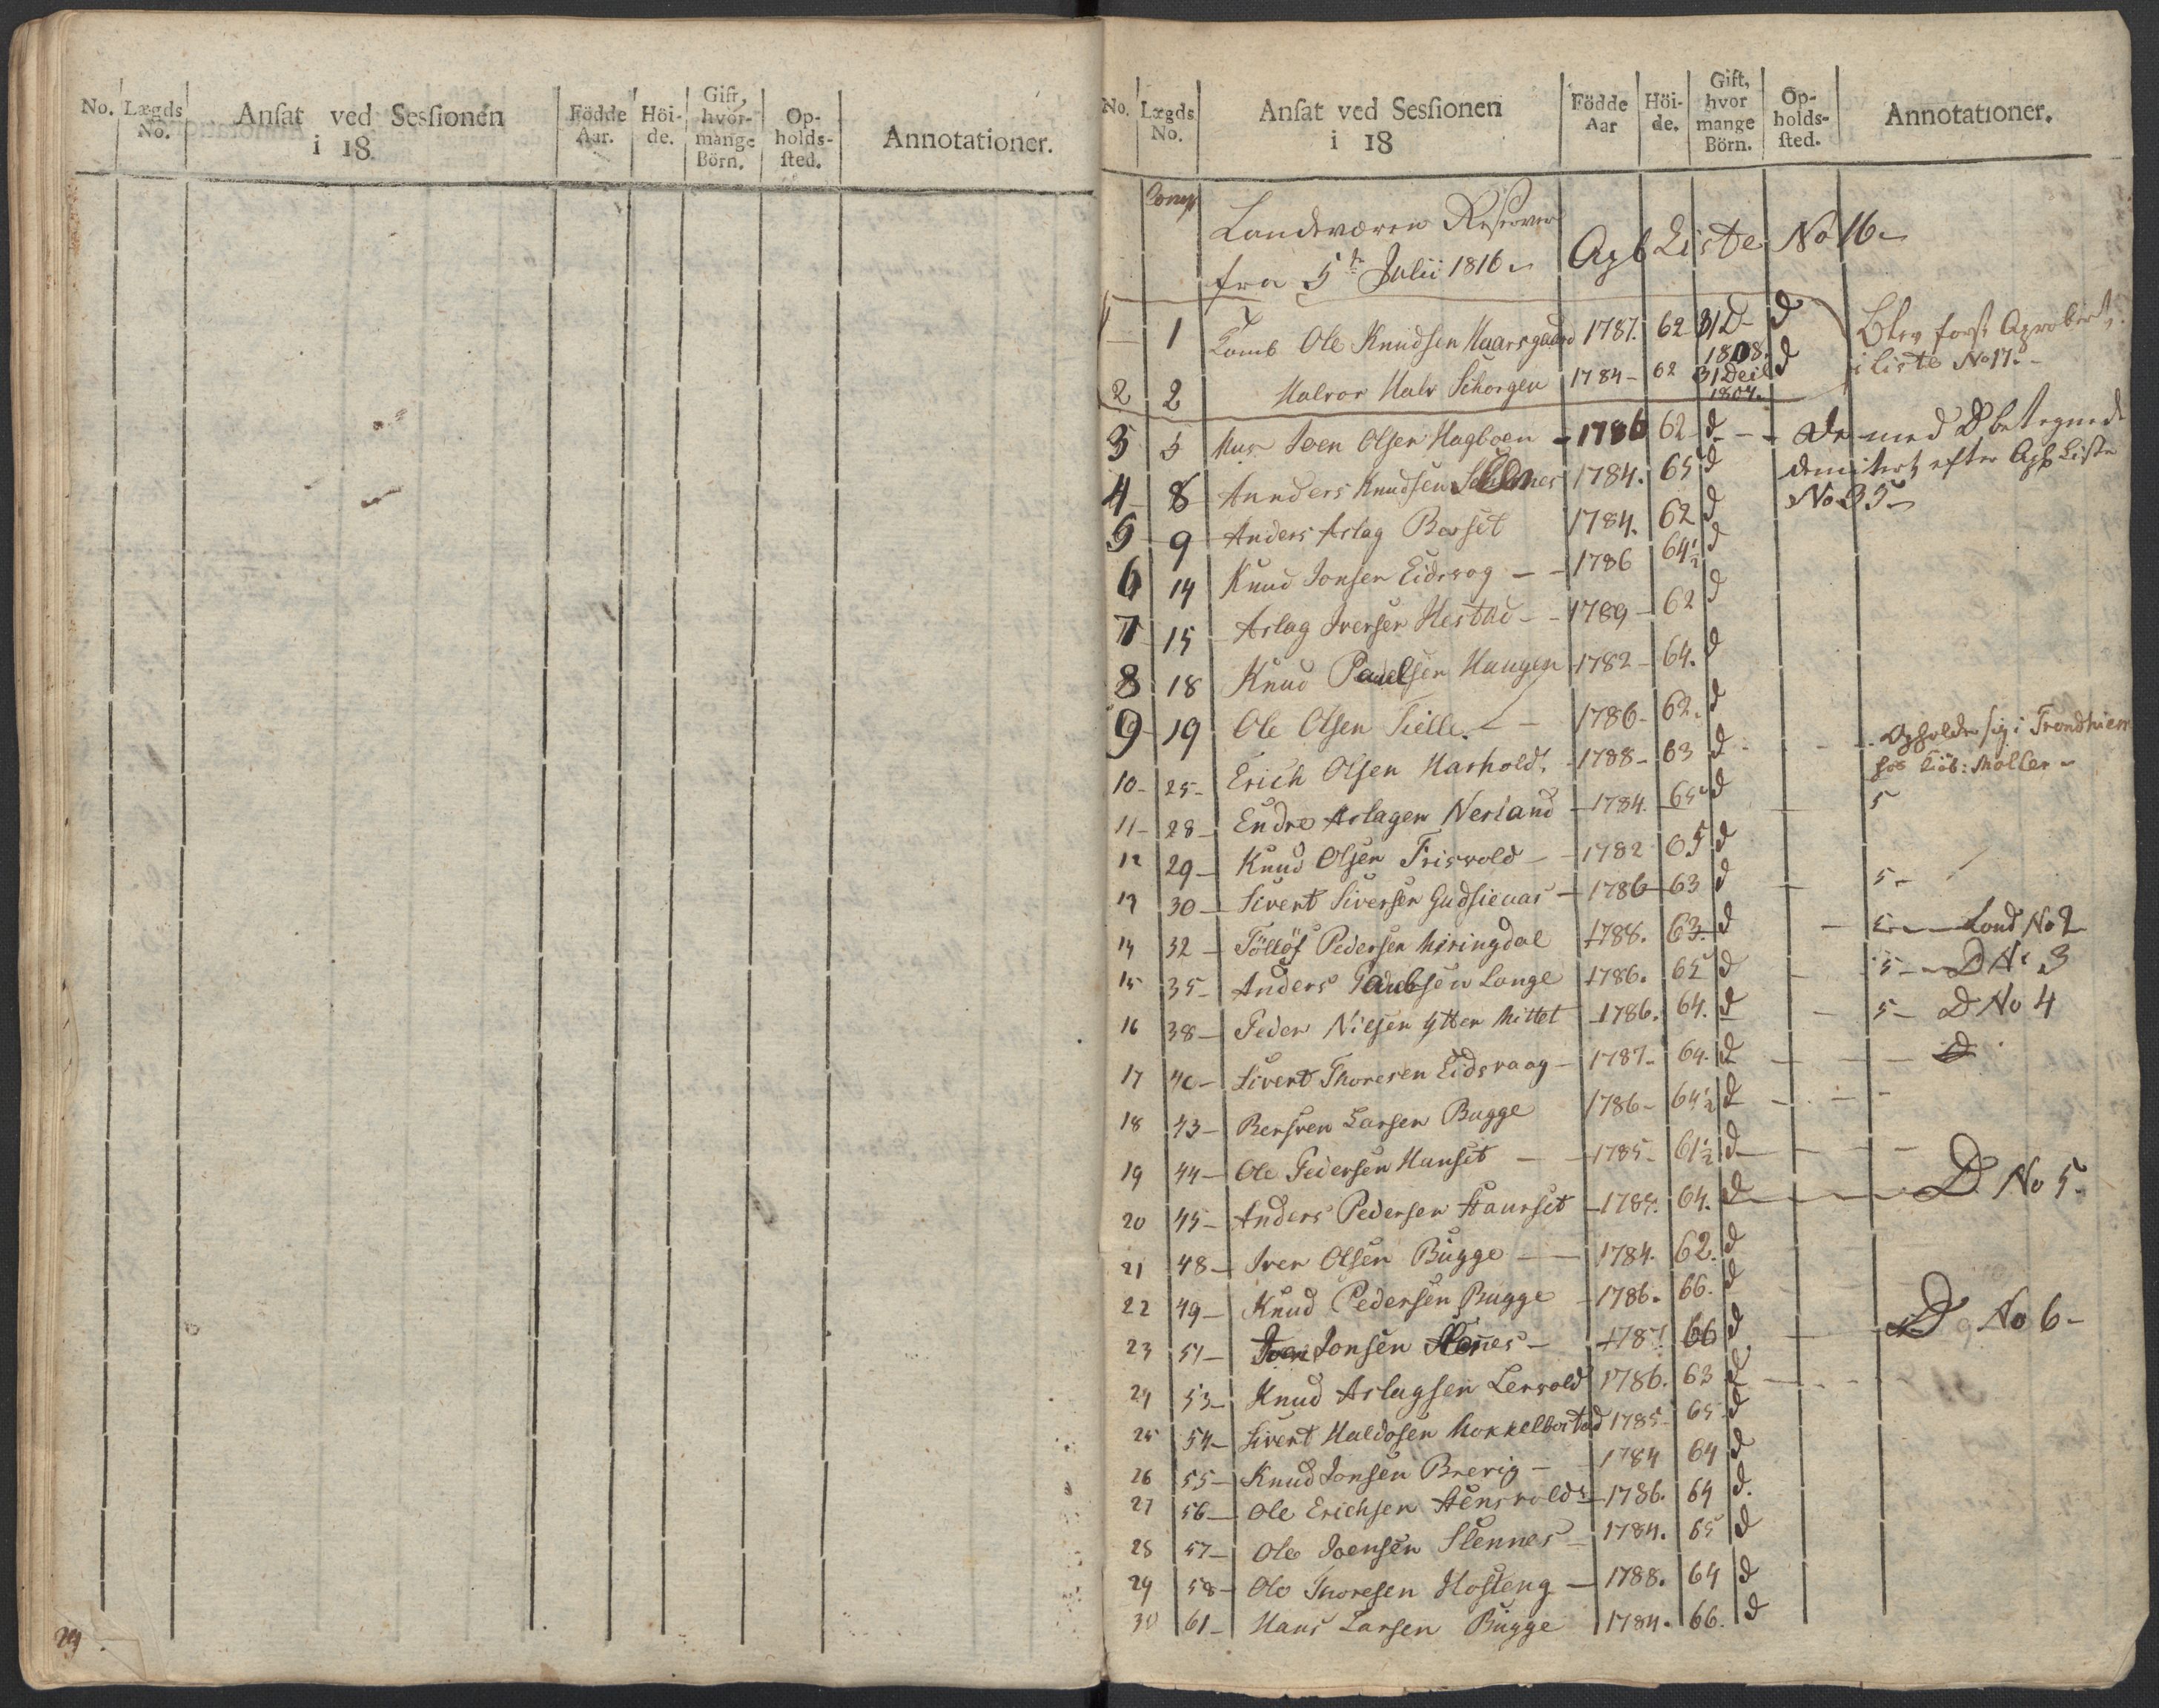 No. Lægds No. Ansat ved Sessionen i 18 Födde Aar. Höi-de. Gift, hvor-mange Börn. Op-holds-sted. Annotationer.
24
No. Lægds No. Ansat ved Sessionen i 18 Födde Aar Höi-de. Gift, hvor mange Börn. Op-holds-sted. Annotationer.
Comp
Landeværen Reserver
fra 5te Julii 1816 Agb Liste No 16
1 1 Tamb Ole Knudsen Haarsgaard 1787. 62 31 D- 1808. d Blev først Aprobert
2 2 Halvor Halv Schorgen 1784- 62 31 Deil 1804. d i Liste No 17.
3 5 Mus Joen Olsen Hagboen 1786 62 d De med D betegnede
4 8 Anders Knudsen 1784. 65 d demitert efter Agb Liste
No 35
5 9 Anders Aslag Barset 1784. 62 d
6 14 Knud Jonsen Eidsvog 1786 64½ d
7 15 Aslag Iversen Hestad 1789 62 d
8 18 Knud Paulsen Haugen 1782 64. d
9 19 Ole Olsen Sielle 1786- 62. d
10- 25- Erich Olsen Harhold. 1788- 63 d Opholder sig i Trondhiem
hos Kiöb: Møller
11- 28- Endre Aslagen Nerland 1784. 65 d 5
12 29- Knud Olsen Frisvold 1782 65 d
13 30- Sivert Siversen Gudsieuas 1786 63 d 5-
14 32- Töllöf Pedersen Miringdal 1788. 63. d 5 Lond No 2
15 35- Anders Paulsen Lange 1786. 65 d 5 D No 3
16 38- Peder Nilsen Ytter Mittet 1786. 64. d 5- D No 4
17 40- Sivert Thoresen Eidsvaag 1787- 64. d D
18 43- Bersven Larsen Bugge 1786- 64½ d
19 44- Ole Pedersen Hanset 1785- 61½ d
20 45- Anders Pedersen Haurset 1785. 64. d D No 5.
21 48- Iver Olsen Bugge 1784. 62. d
22 49- Knud Pedersen Bugge 1786. 66. d
23 51- Joen Jonsen 1787 66 d D No 6-
24 53- Knud Aslagsen Lervold 1786. 63 d
25 54- Sivert Haldosen Mokkelbostad 1785- 65 d
26 55- Knud Jonsen Brevig 1784 64 d
27 56- Ole Erichsen Stensvold 1786. 64 d.
28 57- Ole Joensen Stennes 1784. 65 d
29 58- Ole Thoresen Hosteng 1788. 64 d
30 61- Hans Larsen Bugge 1784. 66. d